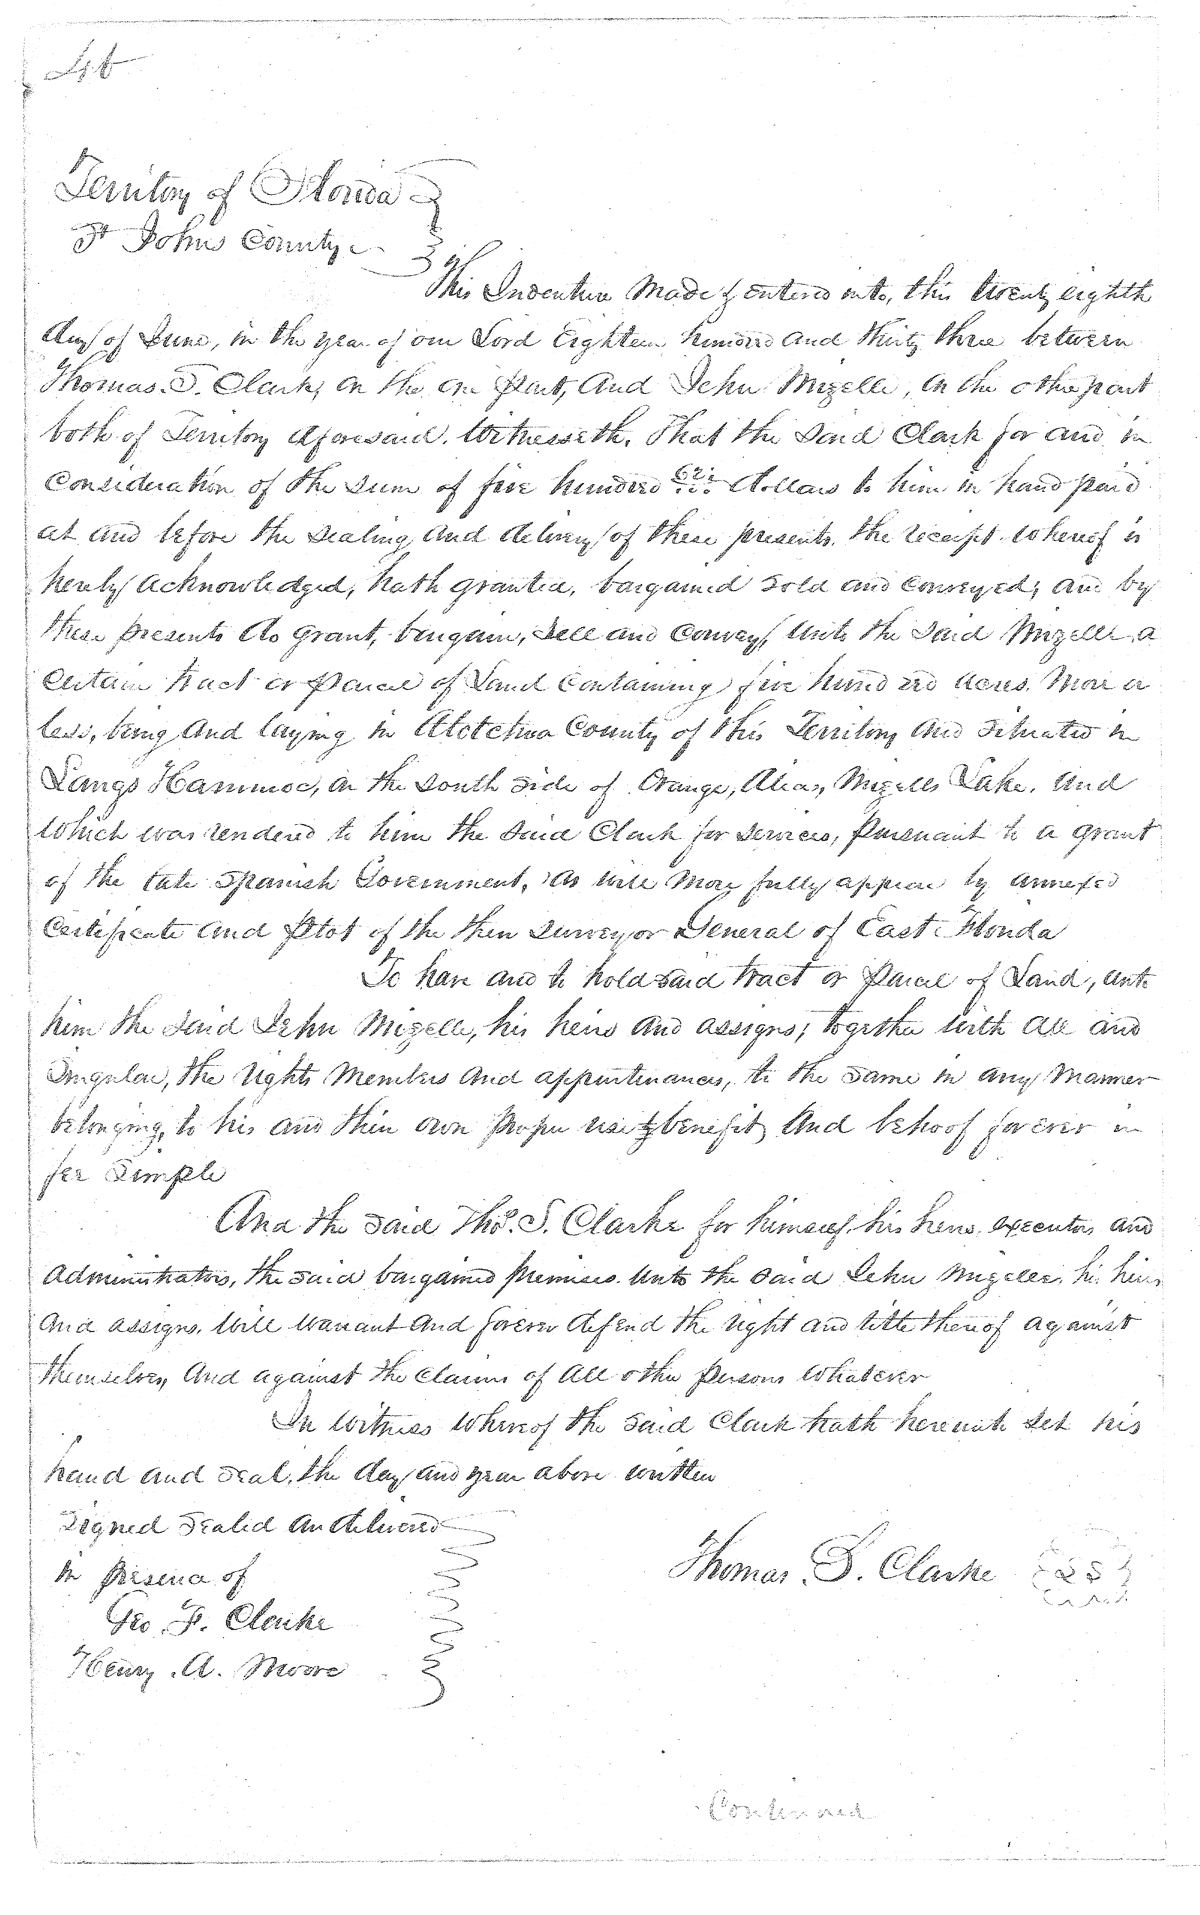 Territory of Florida
St Johns County
This Indenture Made & entered into, this twenty eighth
day of June, in the year of our Lord Eighteen hundred and thirty three between
Thomas. S. Clark, on the one Part, And John Mizelle, on the other part
both of Territory aforesaid. Witnesseth, That the Said Clark for and in
Consideration of the Sum of five hundred Dollars to him in hand paid
at and before the Sealing and delivery of these presents. the receipt whereof is
hereby acknowledged, hath granted, bargained Sold and Conveyed, and by
these presents do grant, bargain, Sell and Convey, unto the Said Mizelle, a
Certain tract or Parcel of Land Containing five hundred acres, More or
less, being and laying in Alotchua County of this Territory and Situated in
Langs Hammoc, on the South Side of Orange, Alias, Mizells Lake. and
Which was rendered to him the Said Clark for services, Pursuant to a grant
of the late Spanish Government, as will More fully appear by annexed
Certificate and Plot of the then Surveyor General of East Florida
To have and to hold said tract or Parcel of Land, unto
him the Said John Mizelle, his heirs and assigns, together with all and
Singular, the rights Members and appurtenances, to the Same in any Manner
belonging, to his and their own proper use & benefit and behoof forever in
fee Simple
And the Said Thos. S. Clarke for himself, his heirs, executors and
Administrators, the said bargained premises unto the said John Mizelle, his heirs
And assigns. Will warrant and forever defend the right and title thereof against
themselves, And against the Claims of all other Persons Whatever
In Witness Whereof the Said Clark hath hereunto Set his
hand and Seal, the day and year above written
Signed Sealed an delivered
in presence of
Thomas. S. Clarke
Geo. F. Clarke
Henry. A. Moore
Continued